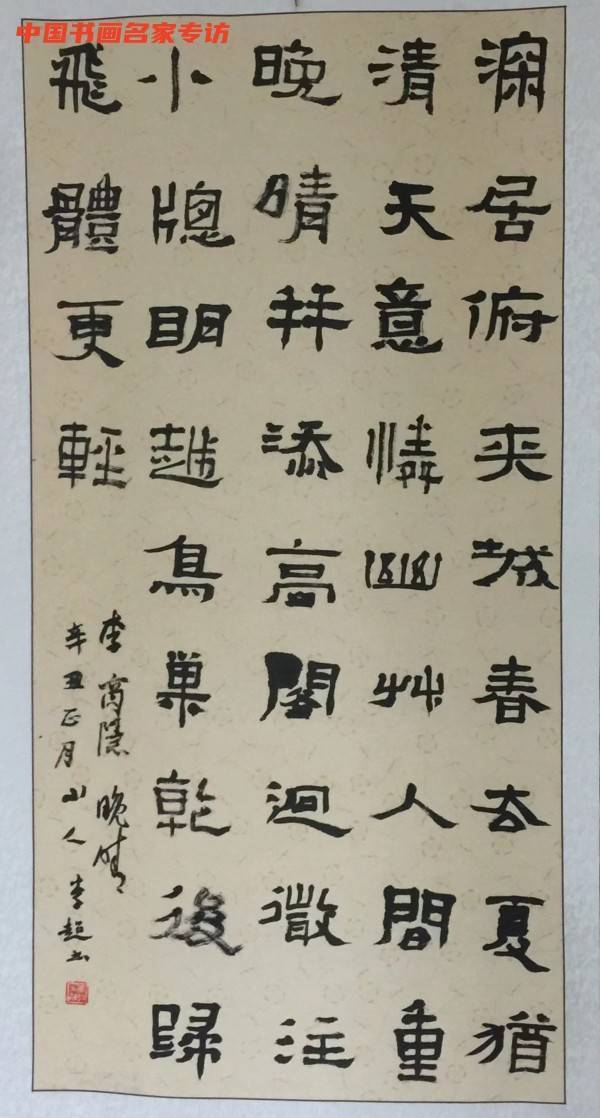 中国书画名家专访
深居俯夾城春去夏猶
清天意憐幽艸人間重
晚晴并添高閣迥微注
小牕明越鳥巢乾後歸
飛體更輕
李商隱 晚晴
辛丑正月 山人 李超书